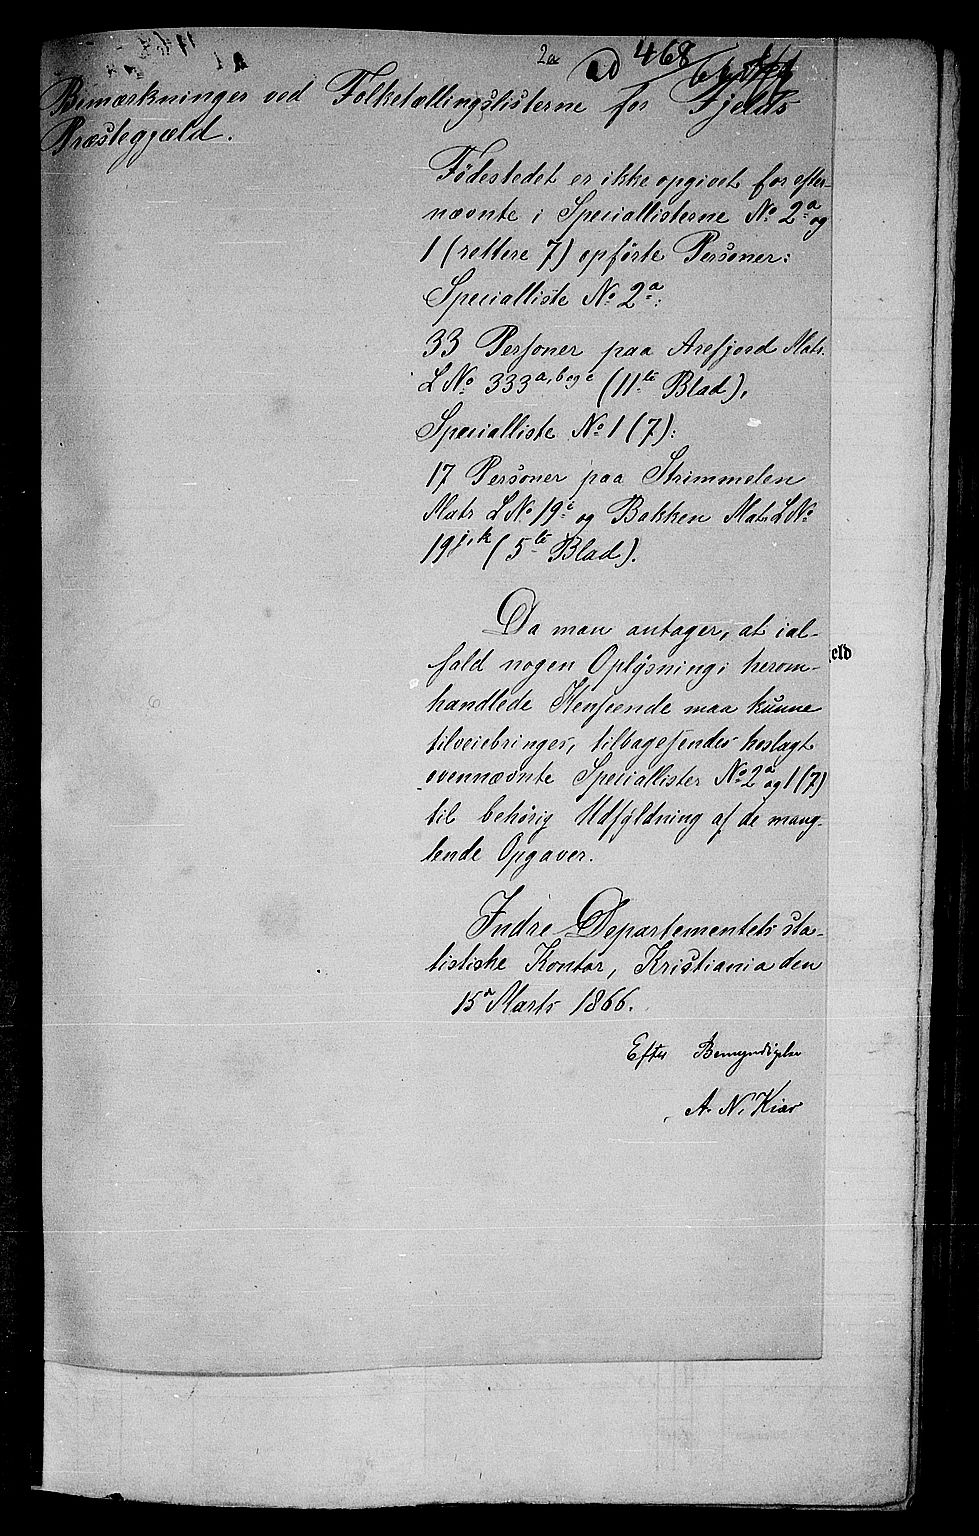 2a
ad 468
Bemærkninger ved Folketællingslisterne for Fjelds
Præstegjæld.
Fødestedet er ikke opgivet for efter-
nævnte i Speciallisterne No 2a og
1 (rettere 7) opførte Personer:
Specialliste No 2a:
33 Personer paa Arefjord Matr.
L No 333a, b og c (11te Blad).
Specialliste No 1 (7):
17 Personer paa Strimmelen
Matr L No 19e og Bakken Mat. L No
19j, k (5te Blad).
Da man antager, at ial-
fald nogen Oplysning i herom-
handlede Henseende maa kunne
tilveiebringes, tilbagesendes heslagt
ovennævnte Speciallister No 2a og 1 (7)
til behørig Udfyldning af de mang-
lende Opgaver.
Indre Departementets sta-
tistiske Kontor, Kristiania den
15de Marts 1866.
Efter Bemyndigelse
A. N. Kiær
geld